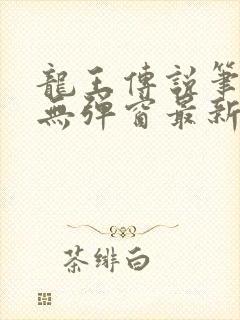 龍王傳說筆
無彈窗最新
茶緋白